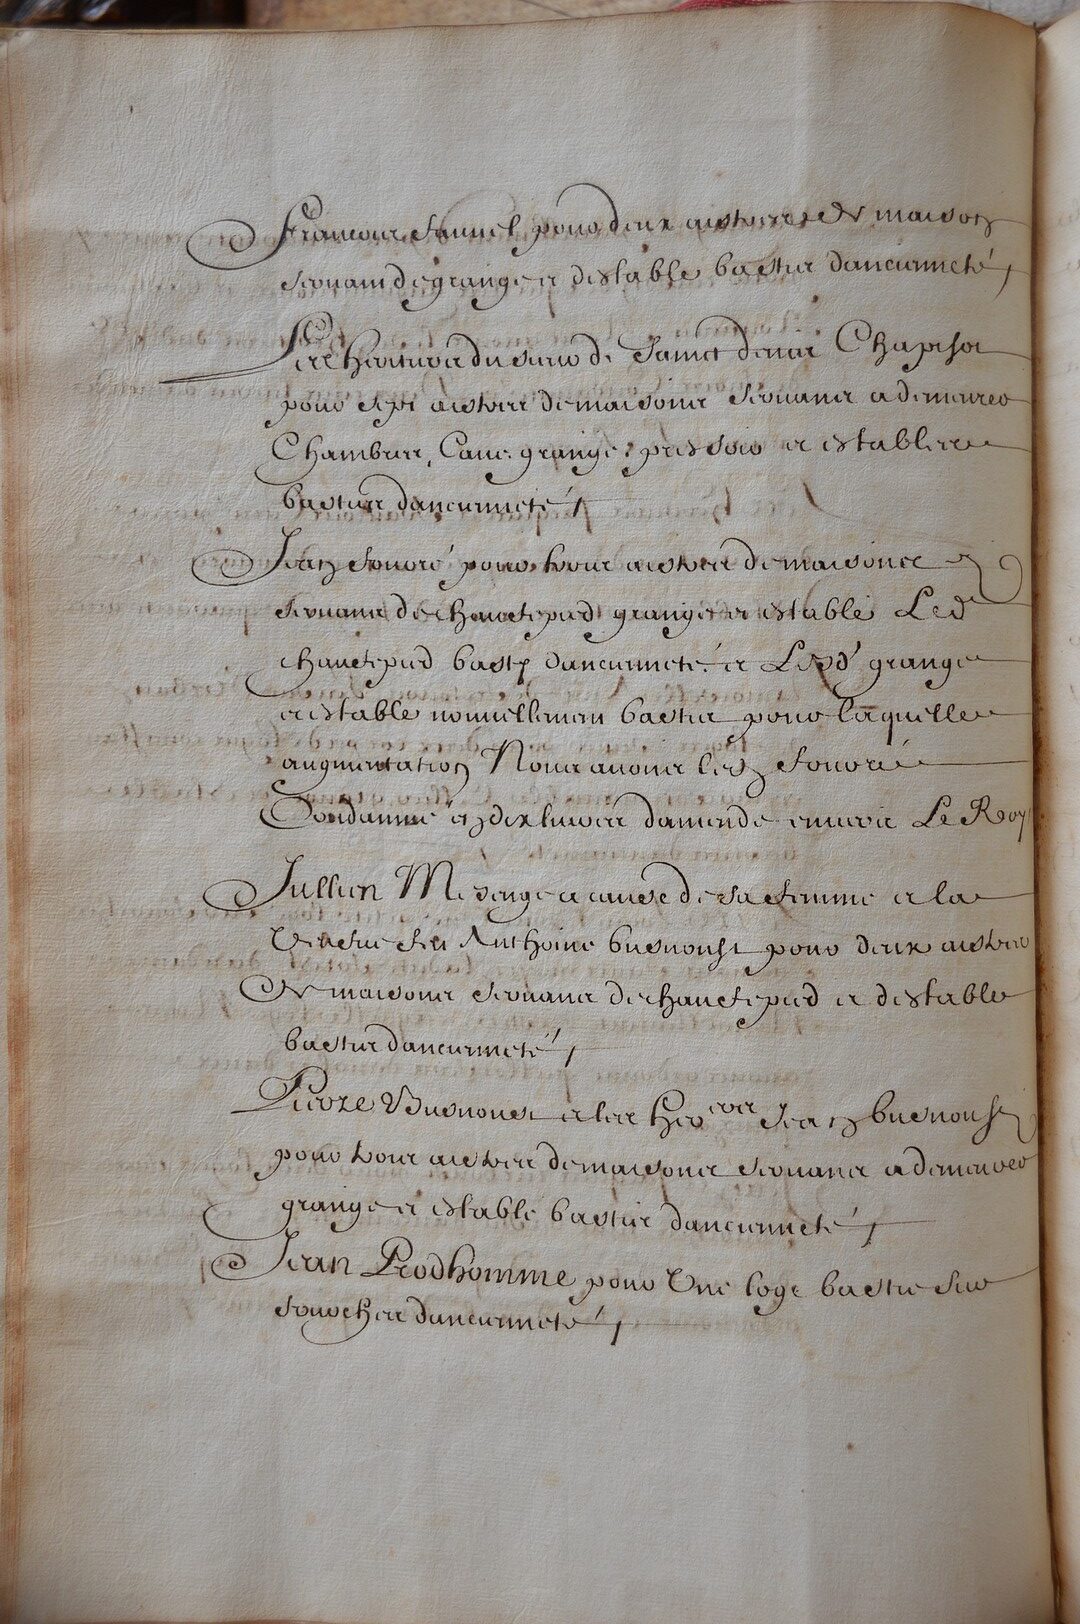 Francois Fannel pour deux aistres de maison
servant de grange et destable bastis danciennete
Les heritiers du sieur de Sainct denis Chapelot
pour sept aistres de maisons servans a demeurer
Chambres, Cave, grange, pressoir et estableries
basties danciennete
Jean Fouoré pour trois aistres de maisons
servans de chauffepied grange et estable Led
chauffepied basty danciennete et Lesd granges
et estable nouvellement bastis pour laquelle
augmentation Nous avons led Fouoré
Condamné en dix livres damende envers Le Roy
Jullien Mesenge a cause de sa femme et la
Veufve feu Anthoine busnoust pour deux aistres
de maisons servans de chauffepied et destable
bastis danciennete
Pierre Busnoust et les Heritiers Jean busnoust
pour trois aistres de maisons servans a demeurer
grange et estable bastis danciennete
Jean Prodhomme pour Une loge bastie sur
fourches danciennete